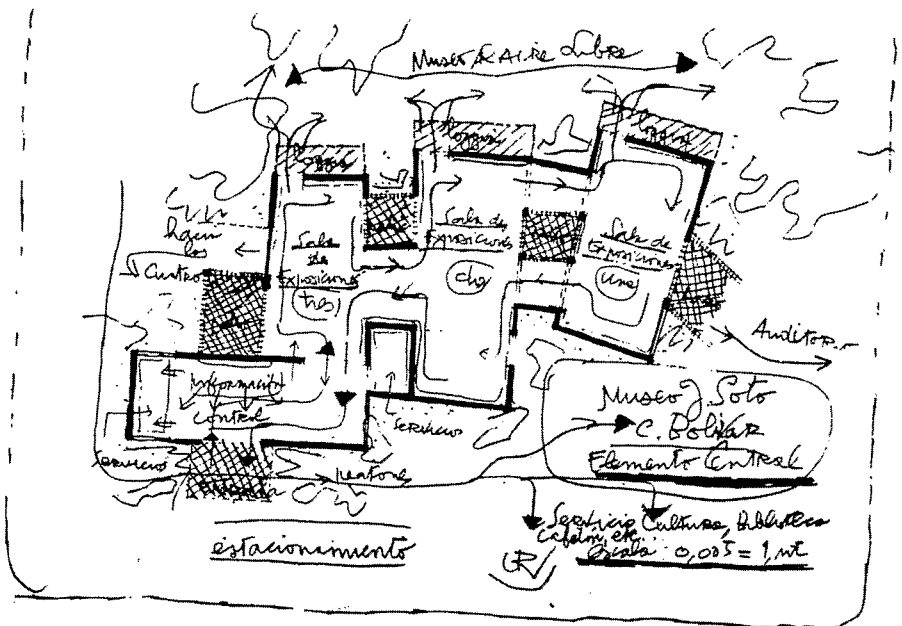 Museo al Aire Libre
loggia
loggia
loggia
Sala de
Exposiciones
tres
Sala de
Exposiciones
dos
Sala de
Exposiciones
una
Cuatro
Información
Control
Servicios
Servicios
peatones
Auditorio
Museo J. Soto
C. Bolívar
Elemento Central
Servicio Cultura, Biblioteca
Cafetín, etc.
Escala: 0,005 = 1, mt
estacionamiento